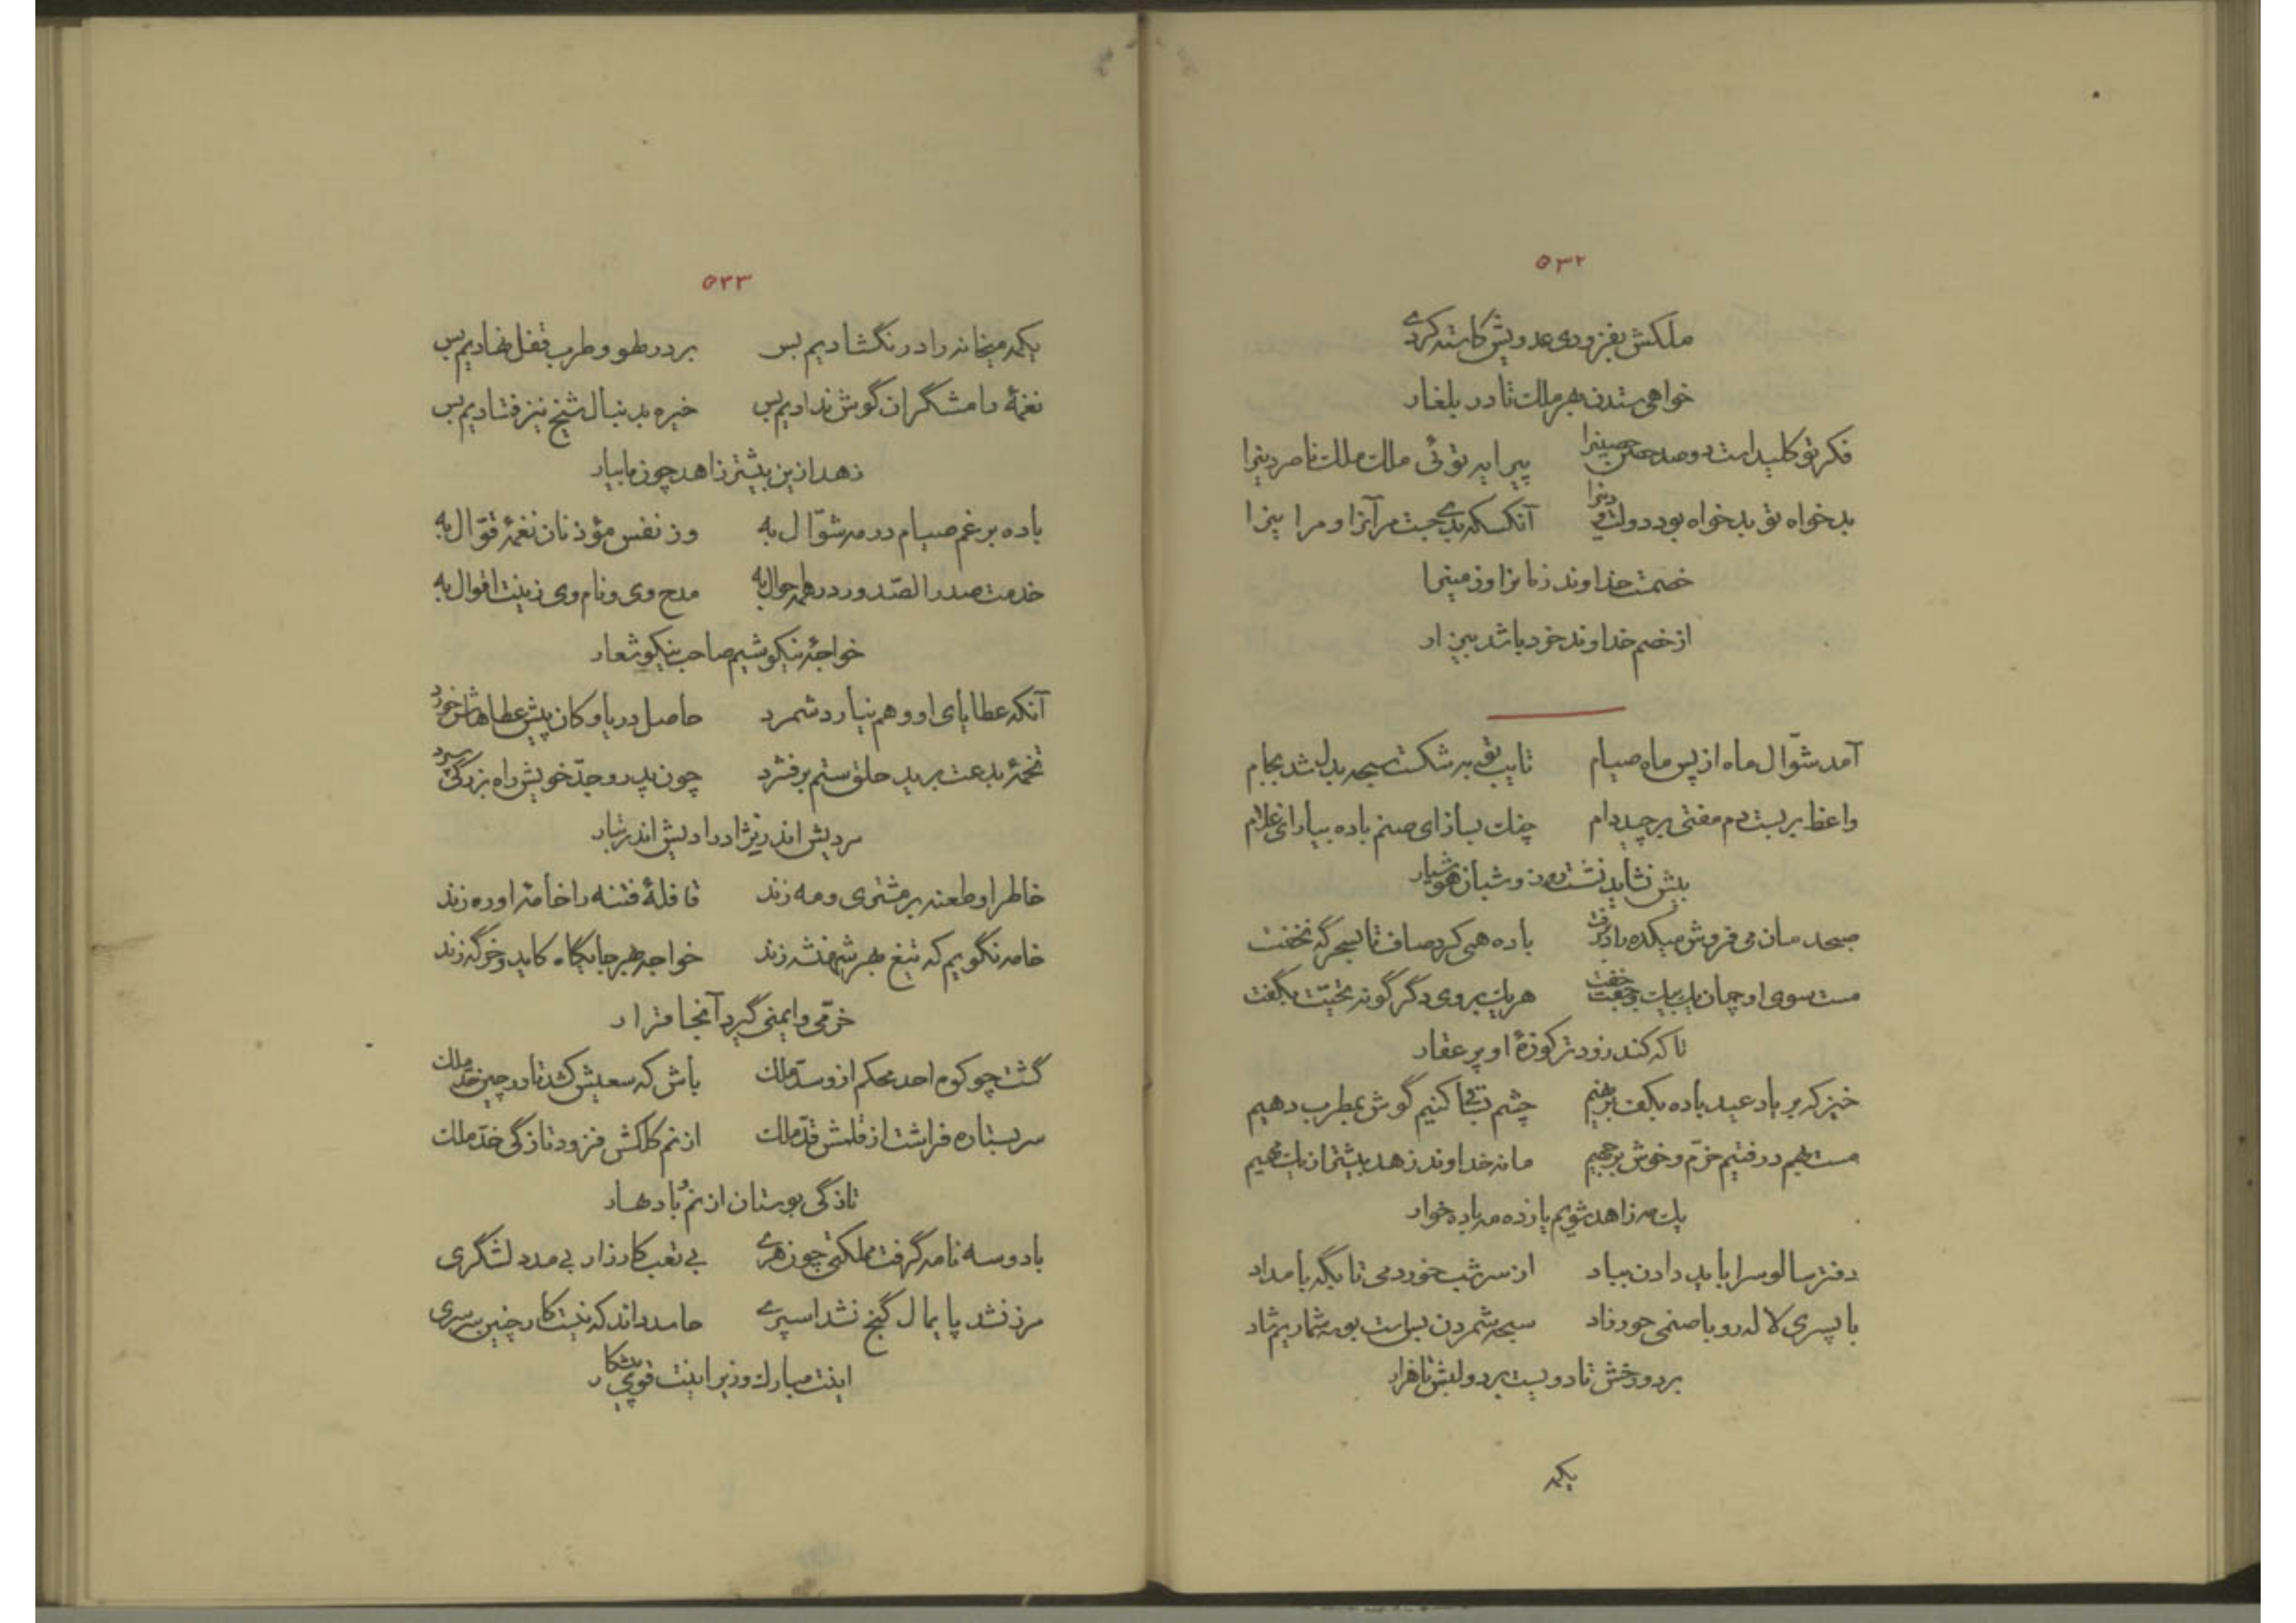 ۵۳۲
ملکش بفزودی عدویش کاسته کردی
خواهی ستدن هر ملک تا در بلغار
فکر تو کلید است دو صد حصن حصینرا پیرایه توئی ملک ملک ناصر دینرا
بدخواه تو بدخواه بود دولت و دینرا آنکسکه بدی جست مر آنرا و مر اینرا
خصمست خداوند زمانرا و زمینرا
از خصم خداوند خرد باشد بیزار
آمد شوّال ماه از پس ماه صیام تایب توبه شکست سبحه بدل شد بجام
واعظ بر بست دم مفتی برچید دام چنگ بساز ای صنم باده بیار ای غلام
بیش نشاید نشست روز و شبان هوشیار
صبحدمان می فروش میکده را در برفت باده همی کرد صاف تا بسحرگه نخفت
مست سوی او چمان یک بیک و جفت جفت هر یک بر وی دگر گونه تحیّت بگفت
تا که کند زودتر کوزهٔ او پر عقار
خیز که بر یاد عید باده بکف برنهیم چشم بساقی کنیم گوش بمطرب دهیم
مست بهم در فتیم خرّم و خوش برجهیم ما نه خداوند زهد بیشتر از یک مهیم
یک مه زاهد شویم یازده مه باده خوار
دفتر سالوس را باید دادن بباد از سر شب خورد می تا بگه بامداد
با پسری لاله رو با صنمی حور زاد سبحه شمردن بس است بوسه شماریم شاد
بر دو رخش تا دویست بر دو لبش تا هزار
یکمه
۵۳۳
یکمه میخانه را در نگشادیم بس بر در لهو و طرب قفل نهادیم بس
نغمهٔ رامشگران گوش ندادیم بس خیره بدنبال شیخ نیز فتادیم بس
زهد ازین بیشتر زاهد چون ما بیار
باده برغم صیام در مه شوّال به وز نفس مؤذنان نغمهٔ قوّال به
خدمت صدر الصّدور در همه احوال به مدح وی و نام وی زینت اقوال به
خواجهٔ نیکو شیم صاحب نیکو شعار
آنکه عطایای او وهم نیارد شمرد حاصل دریا و کان پیش عطاهاش خرد
تخمهٔ بدعت برید حلق ستم بر فشرد چون پدر و جدّ خویش راه بزرگی سپرد
سردیش اندر نژاد رادیش اندر تبار
خاطر او طعنه بر مشتری و مه زند قافلهٔ فتنه را خامهٔ او ره زند
خامه نگویم که تیغ بهر شهنشه زند خواجه بهر جایگاه کاید و خرگه زند
خرّمی و ایمنی گیرد آنجا قرار
گشت چو کوه احد محکم ازو سدّ ملک باش که سعیش کشد تا در چین حدّ ملک
سر بستاره فراشت از قلمش قدّ ملک از نم کلکش فزود تازگی خدّ ملک
تازگی بوستان از نم باد بهار
با دو سه نامه گرفت مملکتی چون هری بی تعب کارزار بی مدد لشگری
مرز نشد پایمال گنج نشد اسپری حاسد داند که نیست کار چنین سرسری
اینت مبارک وزیر اینت قوی پیشکار